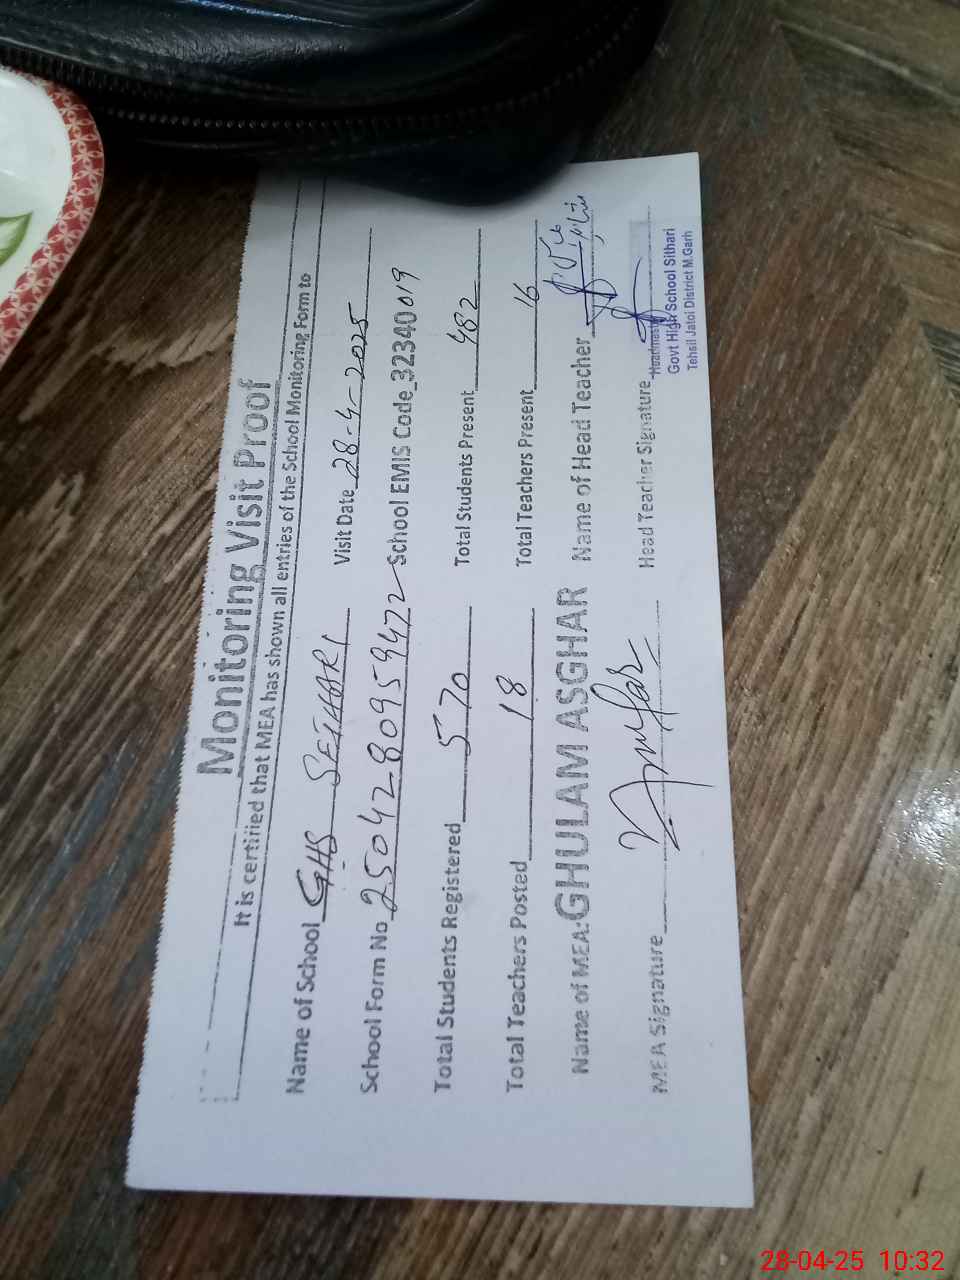 Monitoring Visit Proof
It is certified that MEA has shown all entries of the School Monitoring Form to
Name of School GHS SETHARI Visit Date 28-4-2025
School Form No 2504280959472 School EMIS Code 32340019
Total Students Registered 570 Total Students Present 482
Total Teachers Posted 18 Total Teachers Present 16
Name of MEA: GHULAM ASGHAR Name of Head Teacher
MEA Signature Head Teacher Signature
Headmaster
Govt High School Sithari
Tehsil Jatoi District M.Garh
28-04-25 10:32